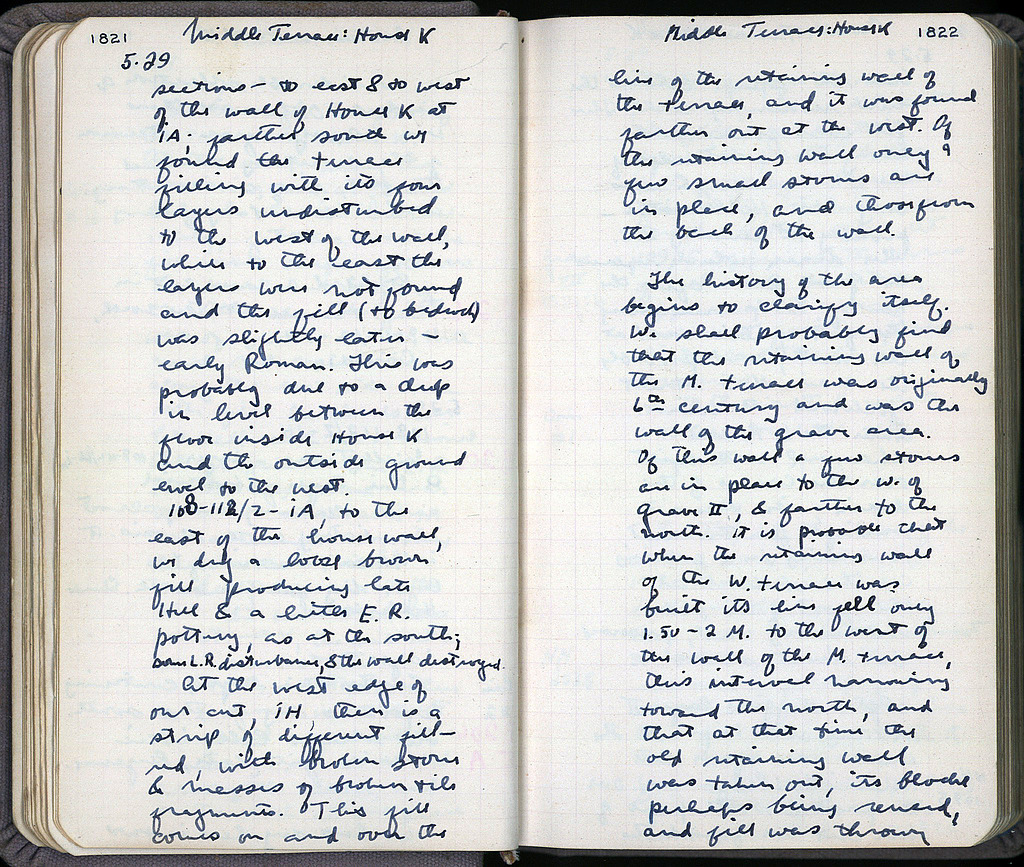 1821 Middle Terrace: House K
5.29
sections - to east & to west
of the wall of House K at
iA; farther south we
found the terrace
filling with its four
layers undisturbed
to the west of the wall,
while to the east the
layers were not found
and the fill (to bedrock)
was slightly later -
early Roman. This was
probably due to a drop
in level between the
floor inside House K
and the outside ground
level to the west.
108-112/2 - iA, to the
east of the house wall,
we dug a loose brown
fill producing late
Hell & a little E.R.
pottery, as at the south;
some L.R. disturbance, & the wall destroyed.
At the west edge of
our cut, iH, there is a
strip of different fill -
red, with broken stones
& masses of broken tile
fragments. This fill
comes on and over the
Middle Terrace: House K 1822
line of the retaining wall of
the terrace, and it was found
farther out at the west. Of
the retaining wall only a
few small stones are
in place, and those from
the back of the wall.
The history of the area
begins to clarify itself.
We shall probably find
that the retaining wall of
the M. terrace was originally
6th century and was the
wall of the grave area.
Of this wall a few stones
are in place to the W. of
grave II, & farther to the
north. It is probable that
when the retaining wall
of the W. terrace was
built its line fell only
1.50 - 2 M. to the west of
the wall of the M. terrace,
this interval narrowing
toward the north, and
that at that time the
old retaining wall
was taken out, its blocks
perhaps being reused,
and fill was thrown